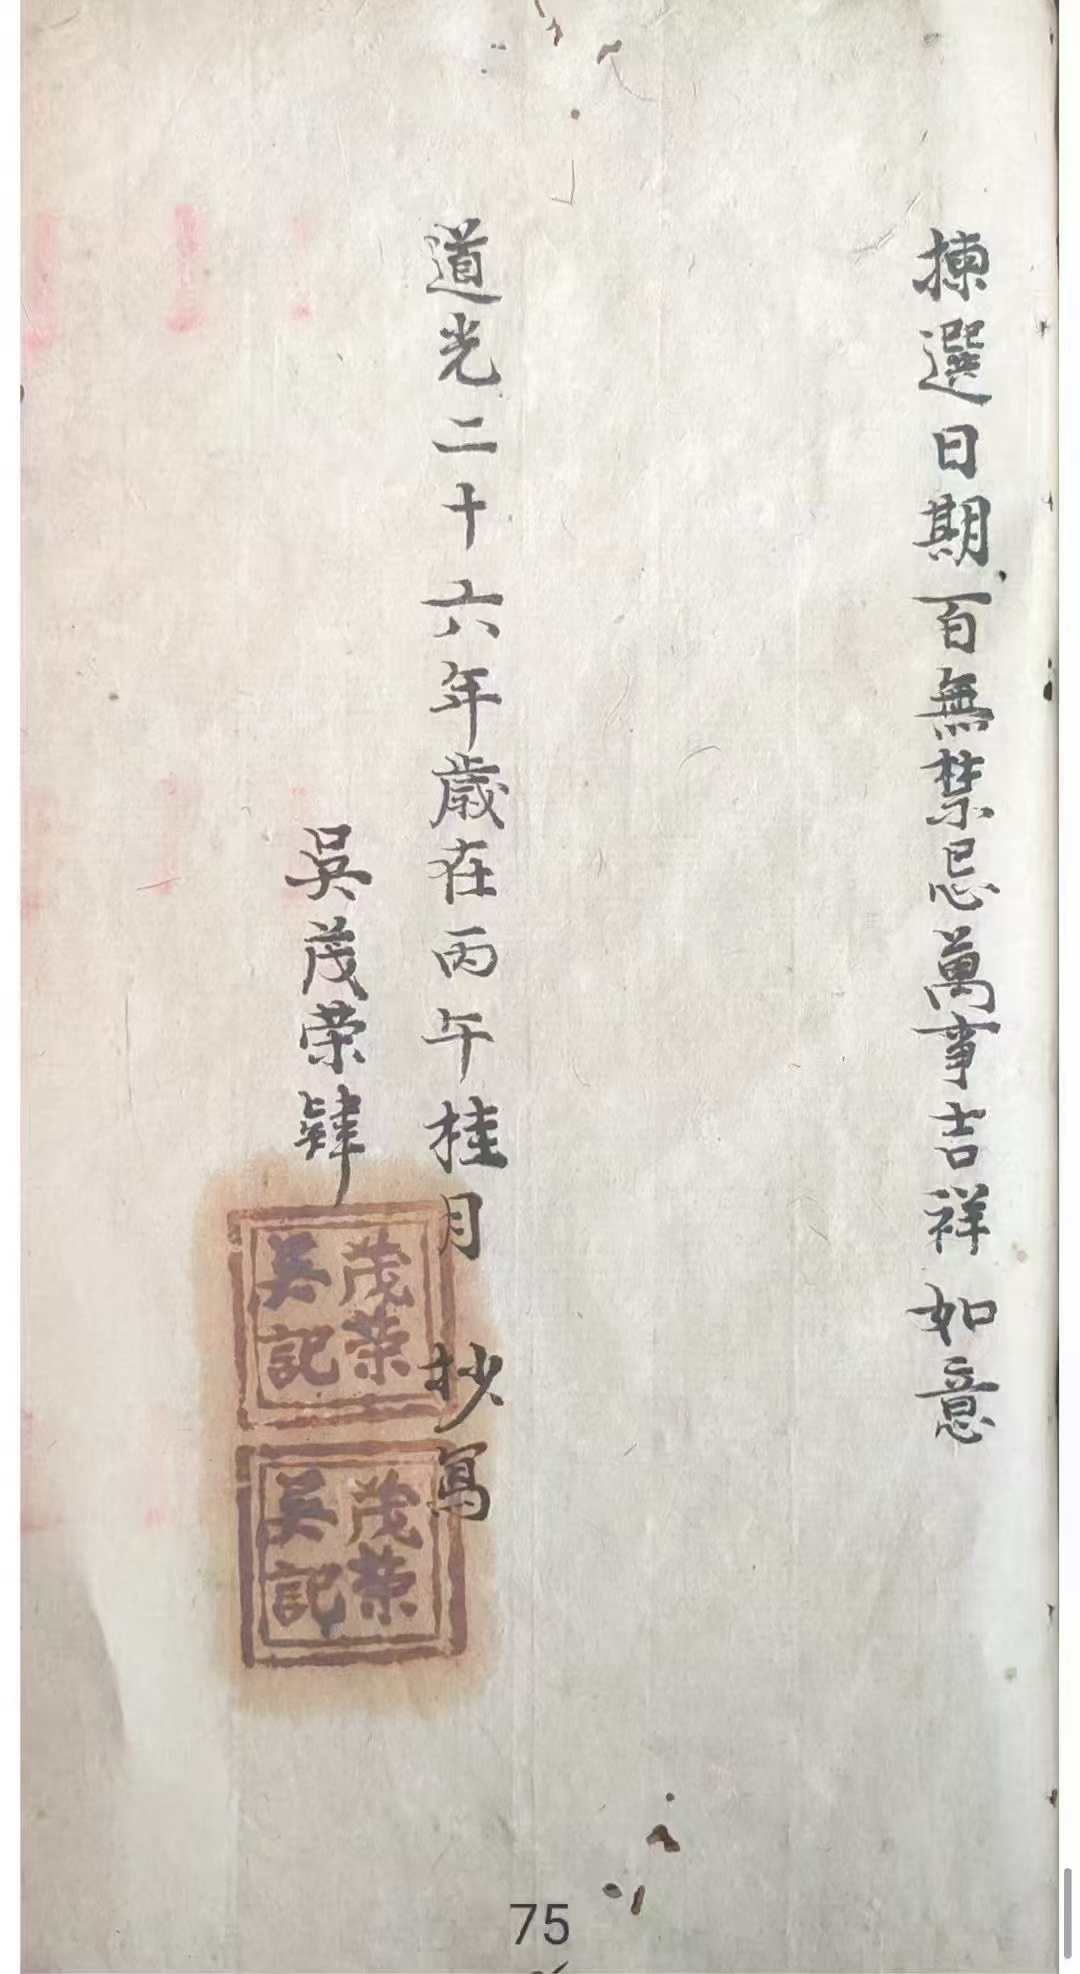 揀選日期百無禁忌萬事吉祥如意
道光二十六年歲在丙午桂月 抄寫
吳茂榮肄
茂榮
吳記
茂榮
吳記
75